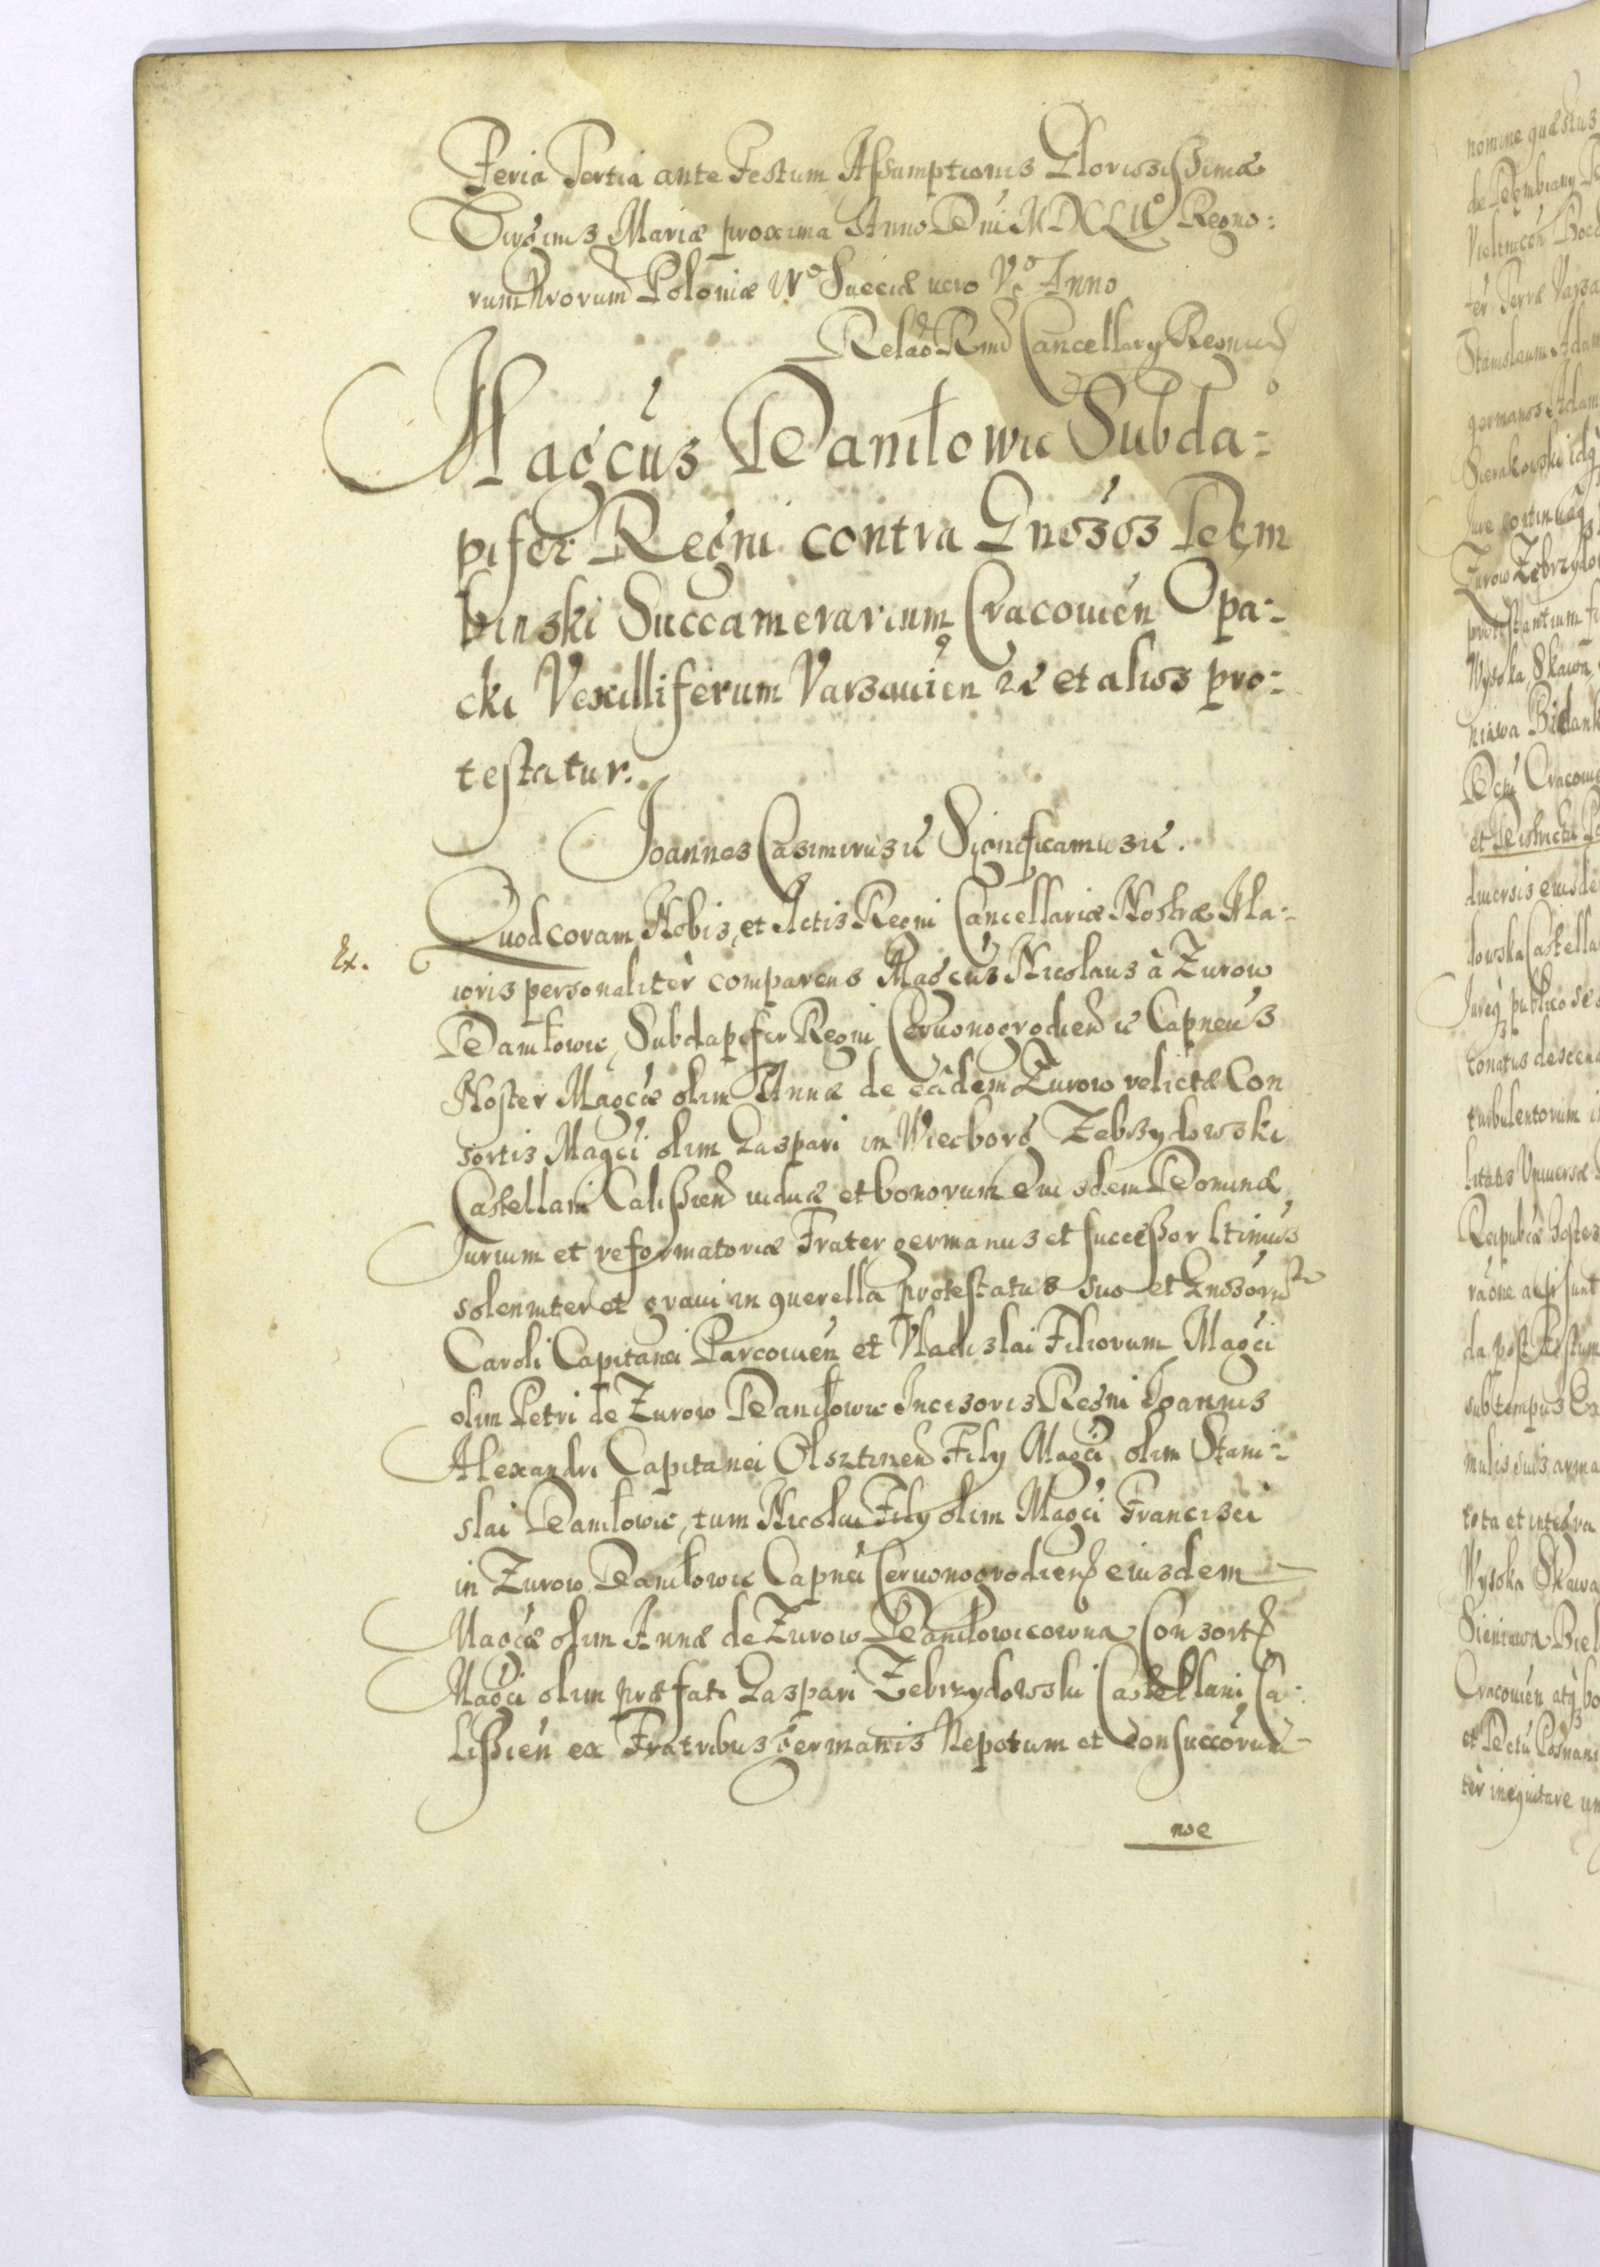 Feria Tertia ante Festum Assumptionis Gloriosissimæ
Virginis Mariæ proxima Anno Dni MDCLIIº Regno:
rum Nrorum Poloniæ IVº Sueciæ uero Vº Anno
Relaõ Rmd Cancellarij Regni
Magcus Daniłowic Subda:
pifer Regni contra Gnosos Dem
binski Succamerarium Cracouien Opa:
cki Vexilliferum Varsauien &c et alios pro:
testatur.
Joannes Casimirus &c Significamus &c.
Quod coram Nobis, et Actis Regni Cancellariæ Nostræ Ma:
Ex.
ioris personaliter comparens Magcus Nicolaus à Zurow
Daniłowic, Subdapifer Regni Ceruonogrodien &c Capneus
Noster Magcæ olim Annæ de eâdem Zurow relictæ Con
sortis Magci olim Gaspari in Wiecborg Zebrzydowski
Castellani Calissien uiduæ et bonorum Eiusdem Dominæ
Iurium et reformatoriæ Frater germanus et successor ltimus
solenniter et graui in querella protestatus suo et Gnsorum
Caroli Capitanei Parcouien et Vladislai Filiorum Magci
olim Petri de Zurow Daniłowic Incisoris Regni Joannis
Alexandri Capitanei Olsztinen Filij Magci olim Stani:
slai Daniłowic, tum Nicolai Filij olim Magci Francisci
in Zurow Daniłowic Capnei Ceruonogrodien eiusdem
Magcæ olim Annæ de Zurow Daniłowicowna Consortis
Magci olim præfati Gaspari Zebrzydowski Castellani Ca:
lissien ex Fratribus Germanis Nepotum et Consuccorum
noe
nomine quæstus
de Dembiany
Vielincon
ter Terræ Varsa
Stanislaum Adam
germanos Adam
Sierakowski idq
Iure continuaq
Zurow Zebrzydo
protestantium
Wysoka, Skawa,
niawa Bielank
Dctu Cracouie
et Districtu
diuersis eiusde
lowska Castella
Iureq publico se
conatus descend
turbulentorum
litatis Vniuersæ
Reipubcæ hostes
raõne
da post Festum
sub tempus
mulis suis arma
tota et integra
Wysoka Skawa
Sieniawa Biel
Cracouien atq bo
et Dctu Posnani
ter inequitare